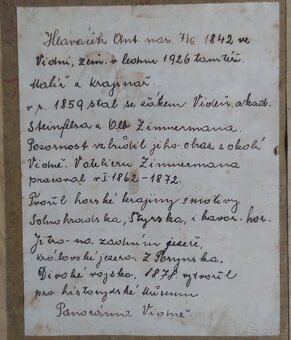 Hlaváček Ant. nar. 7/5 1842 ve
Vídni, zem. v lednu 1926 tamtéž.
Malíř a Krajinář.
v r. 1859 stal se žákem Vídeň. akad.
Steinfelsa a Alb Zimmermana.
Pozornost vzbudil jeho obraz okolí
Vídně. V atelieru Zimmermana
pracoval v l 1862-1872.
Tvořil horské krajiny s motivy
Solnohradska, Štyrska, i bavor. hor.
Jitro na zadním jezeře,
Královské jezero. Z Porýnska.
Divoké vojsko, 1871 vytvořil
pro historydské Museum
Panoráma Vídně.